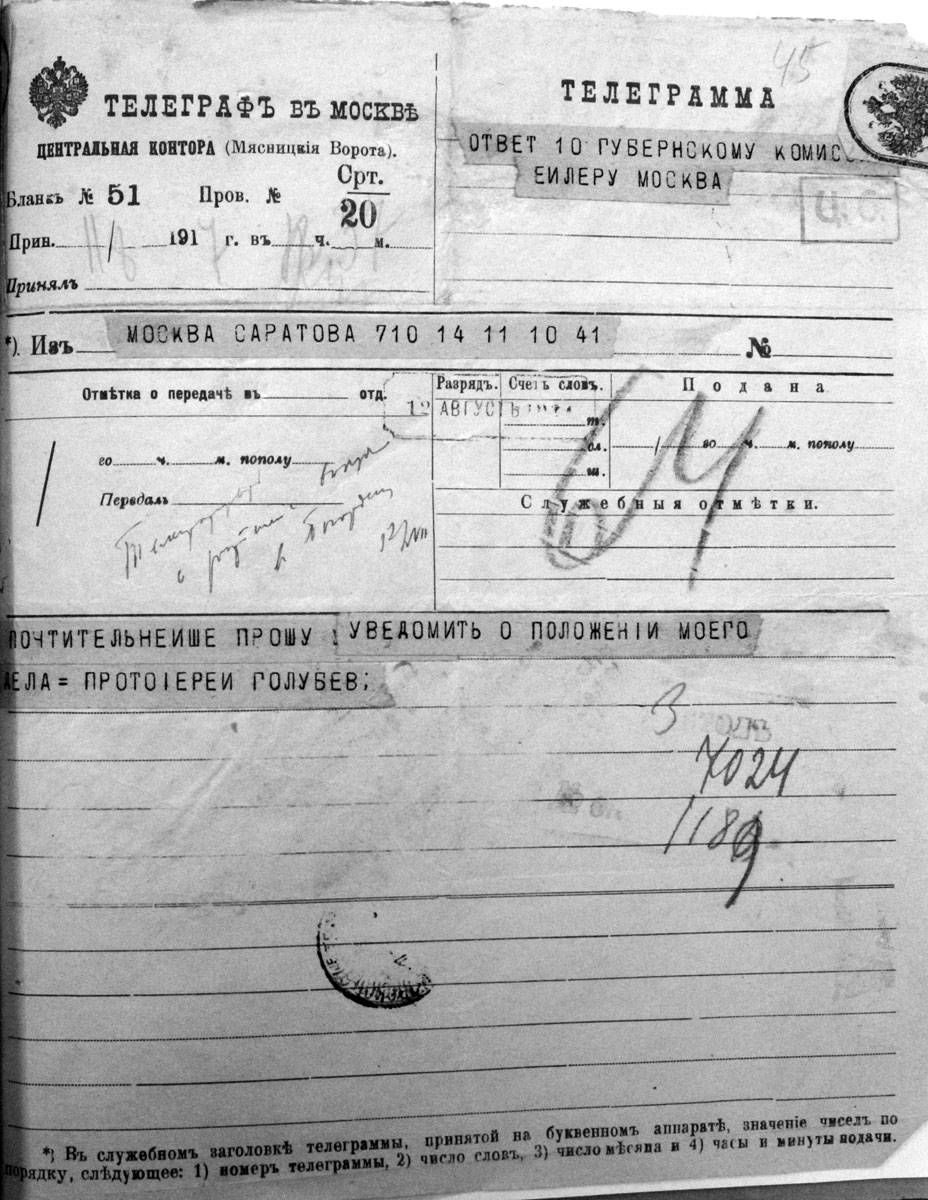 45
ТЕЛЕГРАФЪ ВЪ МОСКВѢ
ЦЕНТРАЛЬНАЯ КОНТОРА (Мясницкія Ворота).
Бланкъ № 51 Пров. № Срт. 20
Прин. 191 7 г. въ ч. м.
Принялъ
ТЕЛЕГРАММА
ОТВЕТ 10 ГУБЕРНСКОМУ
ЕИЛЕРУ МОСКВА
*). Изъ МОСКВА САРАТОВА 710 14 11 10 41 №
Отмѣтка о передачѣ въ отд.
го ч. м. пополу
Передалъ
Разрядъ. Счетъ словъ. Подана
12 АВГУСТЪ
т.
сл. го ч. м. пополу
ш.
Служебныя отмѣтки.
ПОЧТИТЕЛЬНЕИШЕ ПРОШУ УВЕДОМИТЬ О ПОЛОЖЕНІИ МОЕГО
ДЕЛА= ПРОТОІЕРЕИ ГОЛУБЕВ;
7024
1189
*) Въ служебномъ заголовкѣ телеграммы, принятой на буквенномъ аппаратѣ, значеніе чиселъ по
порядку, слѣдующее: 1) номеръ телеграммы, 2) число словъ, 3) число мѣсяца и 4) часы и минуты подачи.